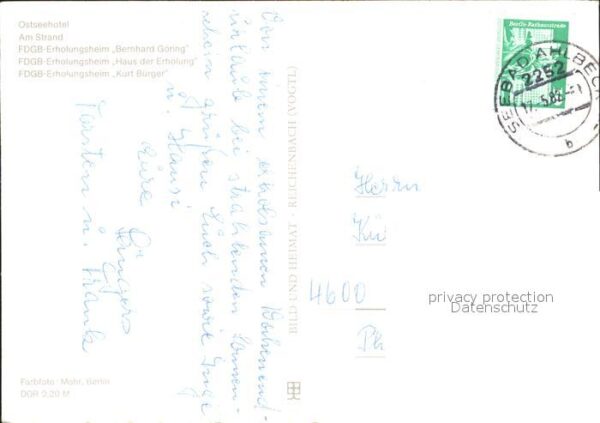 Ostseehotel
Am Strand
FDGB-Erholungsheim „Bernhard Göring"
FDGB-Erholungsheim „Haus der Erholung"
FDGB-Erholungsheim „Kurt Bürger"
Von einem erholsamen Wochenend-
urlaub bei strahlenden Sonnen-
schein grüßen Euch sowie Inge
u. Hansi
Eure
Torsten u. Frank
BILD UND HEIMAT · REICHENBACH (VOGTL)
Farbfoto: Mohr, Berlin
DDR 0,20 M
Berlin, Rathausstraße
SEEBAD AHLBECK
2252
b
Herrn
Kü
4600
privacy protection
Datenschutz